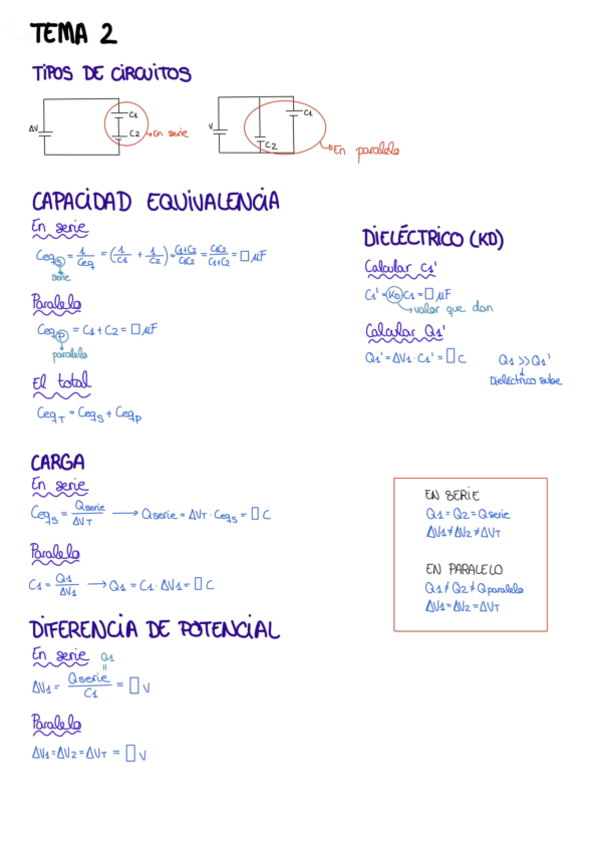 TEMA 2
TIPOS DE CIRCUITOS
ΔV
C1
C2
En serie
V
C1
C2
En paralelo
CAPACIDAD EQUIVALENCIA
En serie
Ceq(S) = 1/Ceq = (1/C1 + 1/C2) = C1+C2/C1C2 = C1C2/C1+C2 = □ μF
serie
Paralelo
Ceq(P) = C1 + C2 = □ μF
paralelo
El total
CeqT = CeqS + CeqP
DIELÉCTRICO (KD)
Calcular C1'
C1' = KD C1 = □ μF
valor que dan
Calcular Q1'
Q1' = ΔV1 · C1' = □ C
Q1 >> Q1'
Dieléctrico sube
CARGA
En serie
CeqS = Qserie/ΔVT → Qserie = ΔVT · CeqS = □ C
Paralelo
C1 = Q1/ΔV1 → Q1 = C1 · ΔV1 = □ C
EN SERIE
Q1 = Q2 = Qserie
ΔV1 ≠ ΔV2 ≠ ΔVT
EN PARALELO
Q1 ≠ Q2 ≠ Qparalelo
ΔV1 = ΔV2 = ΔVT
DIFERENCIA DE POTENCIAL
En serie
Q1
=
ΔV1 = Qserie/C1 = □ V
Paralelo
ΔV1 = ΔV2 = ΔVT = □ V